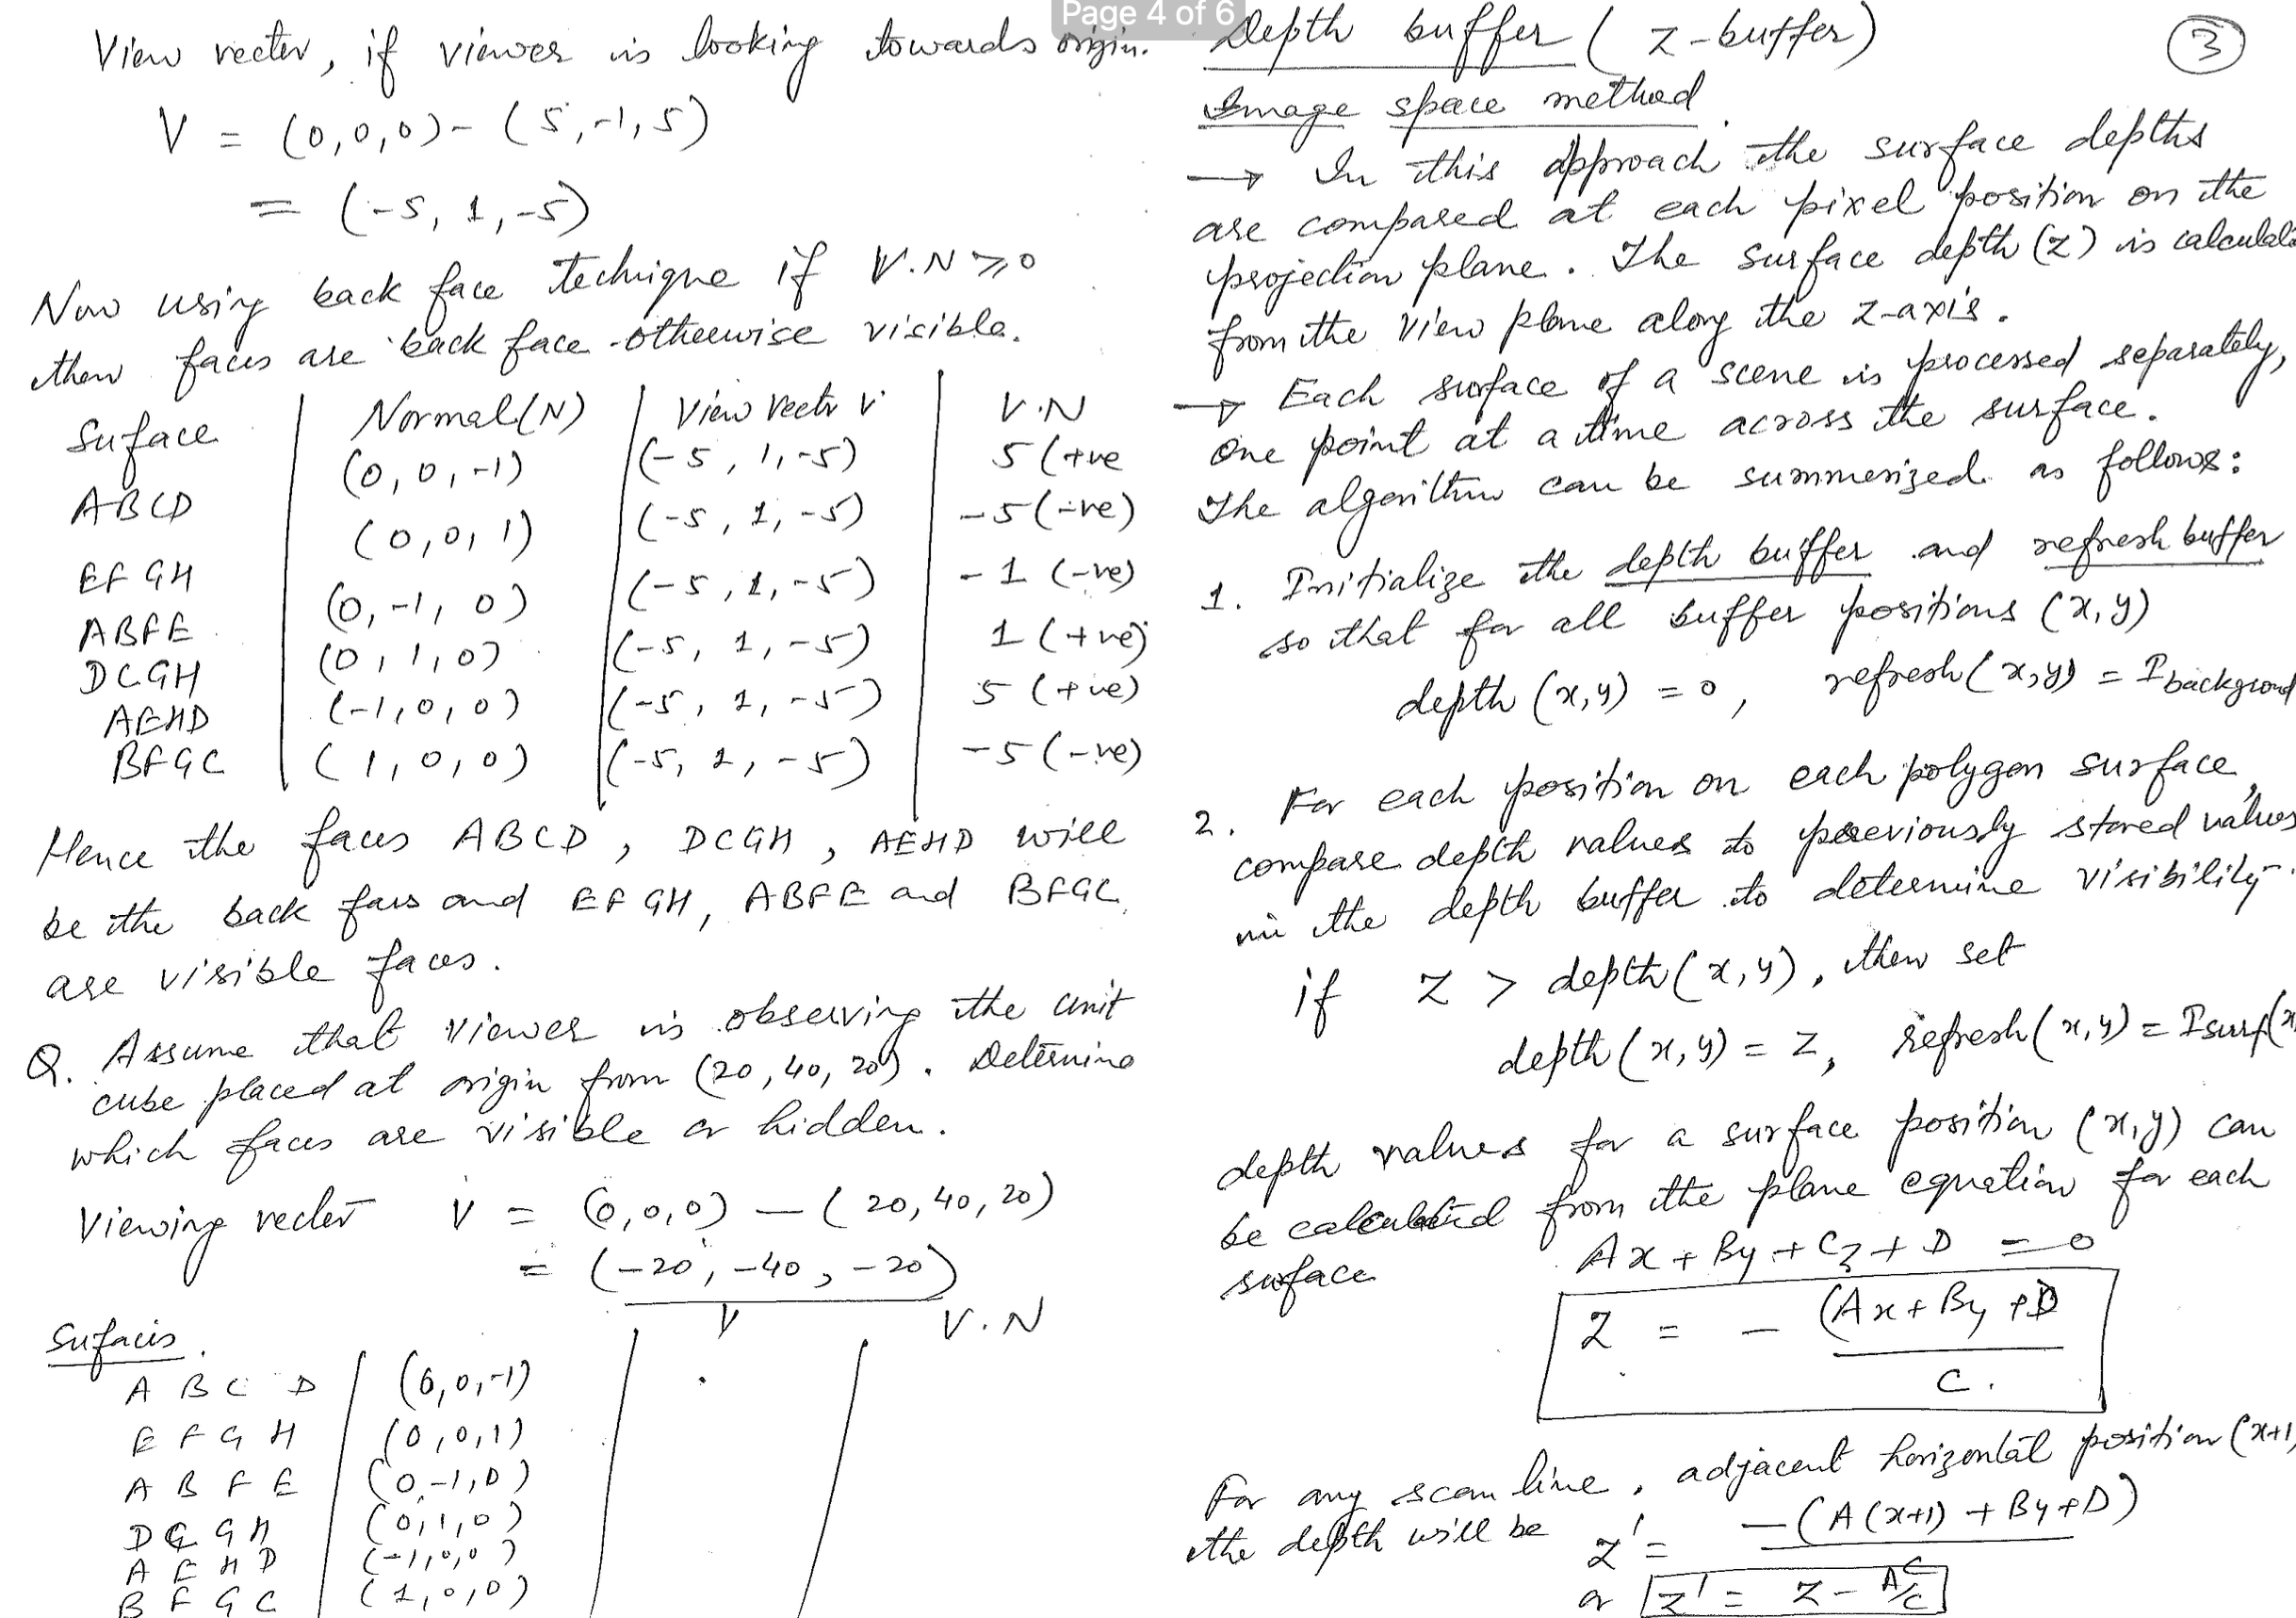 Page 4 of 6
View vector, if viewer is looking towards origin.
V = (0,0,0) - (5,-1,5)
= (-5, 1, -5)
Now using back face technique if V.N ≥ 0
then faces are back face otherwise visible.
Suface | Normal(N) | View Vectr V | V.N
ABCD | (0,0,-1) | (-5, 1, -5) | 5 (+ve
EFGH | (0,0,1) | (-5, 1, -5) | -5 (-ve)
ABFE | (0,-1,0) | (-5, 1, -5) | -1 (-ve)
DCGH | (0,1,0) | (-5, 1, -5) | 1 (+ve)
AEHD | (-1,0,0) | (-5, 1, -5) | 5 (+ve)
BFGC | (1,0,0) | (-5, 1, -5) | -5 (-ve)
Hence the faces ABCD, DCGH, AEHD will
be the back faces and EFGH, ABFE and BFGC
are visible faces.
Q. Assume that viewer is observing the unit
cube placed at origin from (20,40,20). Determine
which faces are visible or hidden.
Viewing vector V = (0,0,0) - (20,40,20)
= (-20, -40, -20)
Sufaces. | V | V.N
A B C D | (0,0,-1)
E F G H | (0,0,1)
A B F E | (0,-1,0)
D C G H | (0,1,0)
A E H D | (-1,0,0)
B F G C | (1,0,0)
Depth buffer (z-buffer)
3
Image space method.
→ In this approach the surface depths
are compared at each pixel position on the
projection plane. The surface depth (z) is calculat
from the view plane along the z-axis.
→ Each surface of a scene is processed separately,
one point at a time across the surface.
The algorithm can be summerized as follows:
1. Initialize the depth buffer and refresh buffer
so that for all buffer positions (x,y)
depth (x,y) = 0, refresh(x,y) = I background
2. For each position on each polygon surface,
compare depth values to previously stored values
in the depth buffer to determine visibility.
if z > depth(x,y), then set
depth(x,y) = z, refresh(x,y) = Isurf(x
depth values for a surface position (x,y) can
be calculated from the plane equation for each
surface Ax + By + Cz + D = 0
z = - (Ax + By + D / C.
For any scan line, adjacent horizontal position (x+1,
the depth will be z' = -(A(x+1) + By + D) / C
or z' = z - A/C